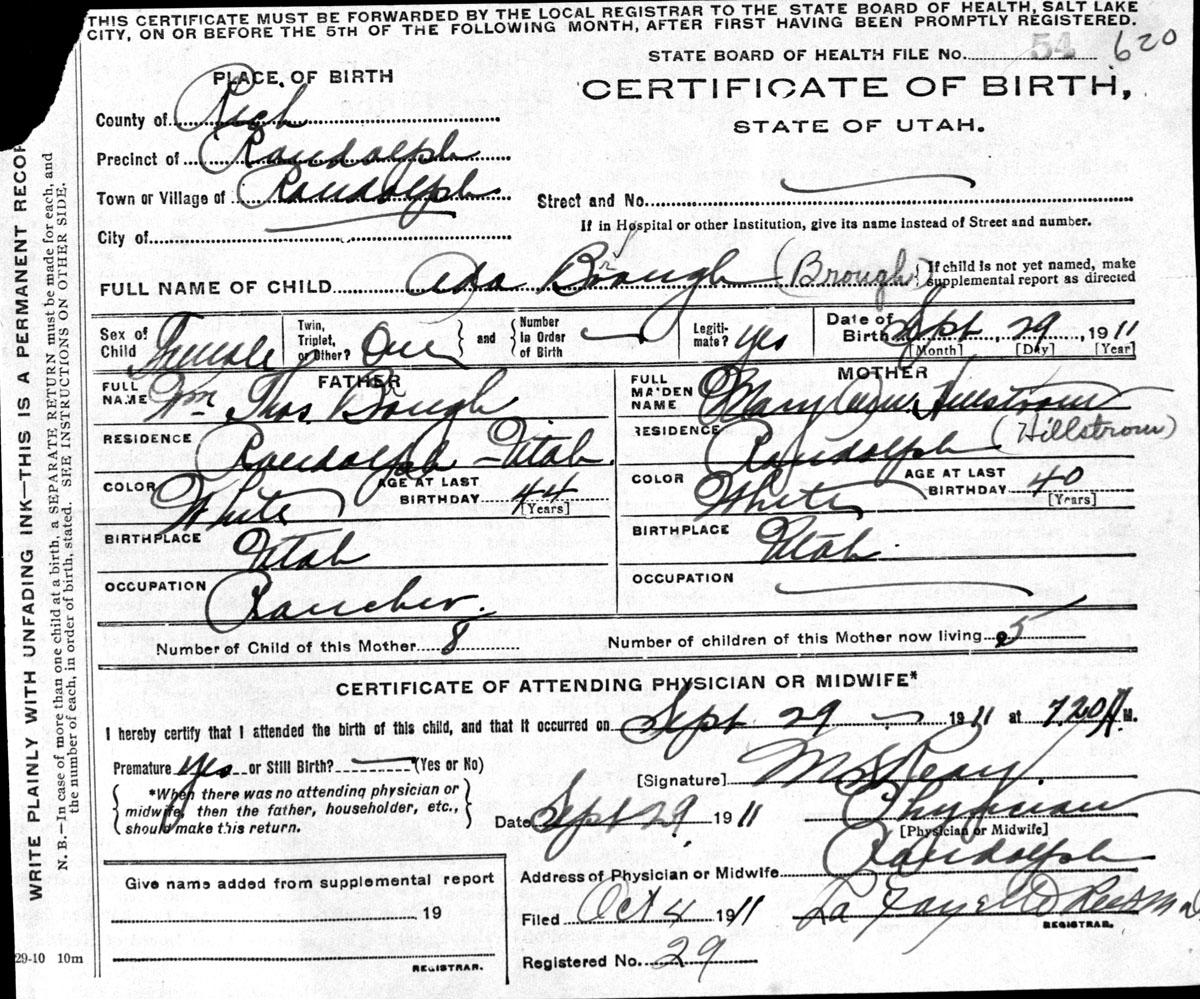 THIS CERTIFICATE MUST BE FORWARDED BY THE LOCAL REGISTRAR TO THE STATE BOARD OF HEALTH, SALT LAKE
CITY, ON OR BEFORE THE 5TH OF THE FOLLOWING MONTH, AFTER FIRST HAVING BEEN PROMPTLY REGISTERED.
STATE BOARD OF HEALTH FILE No. 54 620
PLACE OF BIRTH
CERTIFICATE OF BIRTH,
STATE OF UTAH.
County of Rich
Precinct of Randolph
Town or Village of Randolph
City of
Street and No.
If in Hospital or other Institution, give its name instead of Street and number.
FULL NAME OF CHILD Ada Brough (Brough) {If child is not yet named, make
supplemental report as directed
Sex of Child Female
Twin, Triplet, or Other? One } and { Number in Order of Birth
Legiti-mate? yes
Date of Birth Sept. 29, 1911
[Month] [Day] [Year]
FATHER
FULL NAME Wm Thos. Brough
RESIDENCE Randolph - Utah.
COLOR White
AGE AT LAST BIRTHDAY 44
[Years]
BIRTHPLACE Utah
OCCUPATION Rancher.
MOTHER
FULL MAIDEN NAME Mary Ann Hillstrom
RESIDENCE Randolph (Hillstrom)
COLOR White
AGE AT LAST BIRTHDAY 40
[Years]
BIRTHPLACE Utah.
OCCUPATION
Number of Child of this Mother 8
Number of children of this Mother now living 5
CERTIFICATE OF ATTENDING PHYSICIAN OR MIDWIFE*
I hereby certify that I attended the birth of this child, and that it occurred on Sept 29 1911 at 7.20 A M.
Premature yes or Still Birth? (Yes or No)
{ *When there was no attending physician or
midwife, then the father, householder, etc.,
should make this return. }
[Signature] Reay.
Physician
[Physician or Midwife]
Date Sept 29 1911
Address of Physician or Midwife Randolph
Give name added from supplemental report
19
REGISTRAR.
Filed Oct 4 1911 La Fayette Rees
REGISTRAR.
Registered No. 29
29-10 10m
WRITE PLAINLY WITH UNFADING INK—THIS IS A PERMANENT RECOR
N. B.—In case of more than one child at a birth, a SEPARATE RETURN must be made for each, and
the number of each, in order of birth, stated. SEE INSTRUCTIONS ON OTHER SIDE.